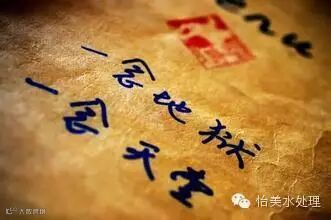 一念地狱
一念天堂
怡美水处理